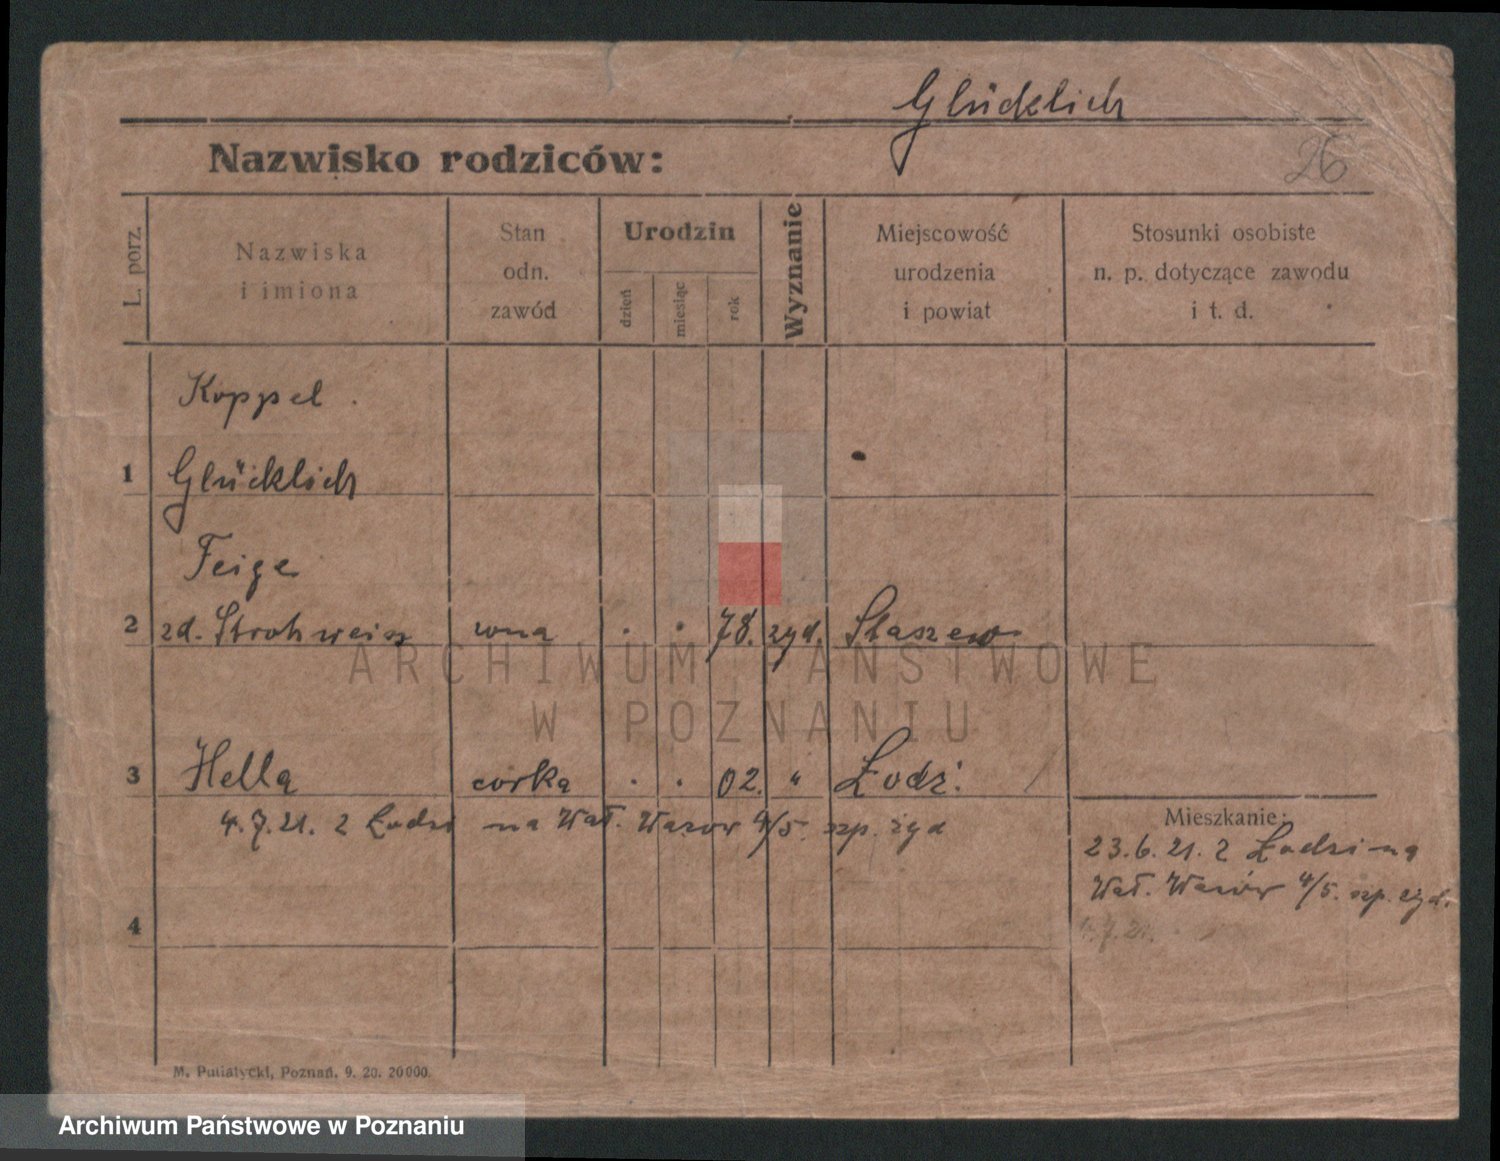 Glücklich
26
Nazwisko rodziców:
L. porz.
Nazwiska
i imiona
Stan
odn.
zawód
Urodzin
dzień
miesiąc
rok
Wyznanie
Miejscowość
urodzenia
i powiat
Stosunki osobiste
n. p. dotyczące zawodu
i t. d.
Koppel.
1 Glücklich
Feige
2 zd. Strohweisz wna . . 78. żyd. Staszew
3 Hella corka . . 02. " Łodź.
4.7.21. z Łodzi na Wał. Wazow 4/5. szp. żyd
Mieszkanie:
23.6.21. z Łodzi na
Wał. Wazów 4/5. szp. żyd.
4.7.21.
4
M. Putiatycki, Poznań. 9. 20. 20000.
ARCHIWUM PAŃSTWOWE
W POZNANIU
Archiwum Państwowe w Poznaniu